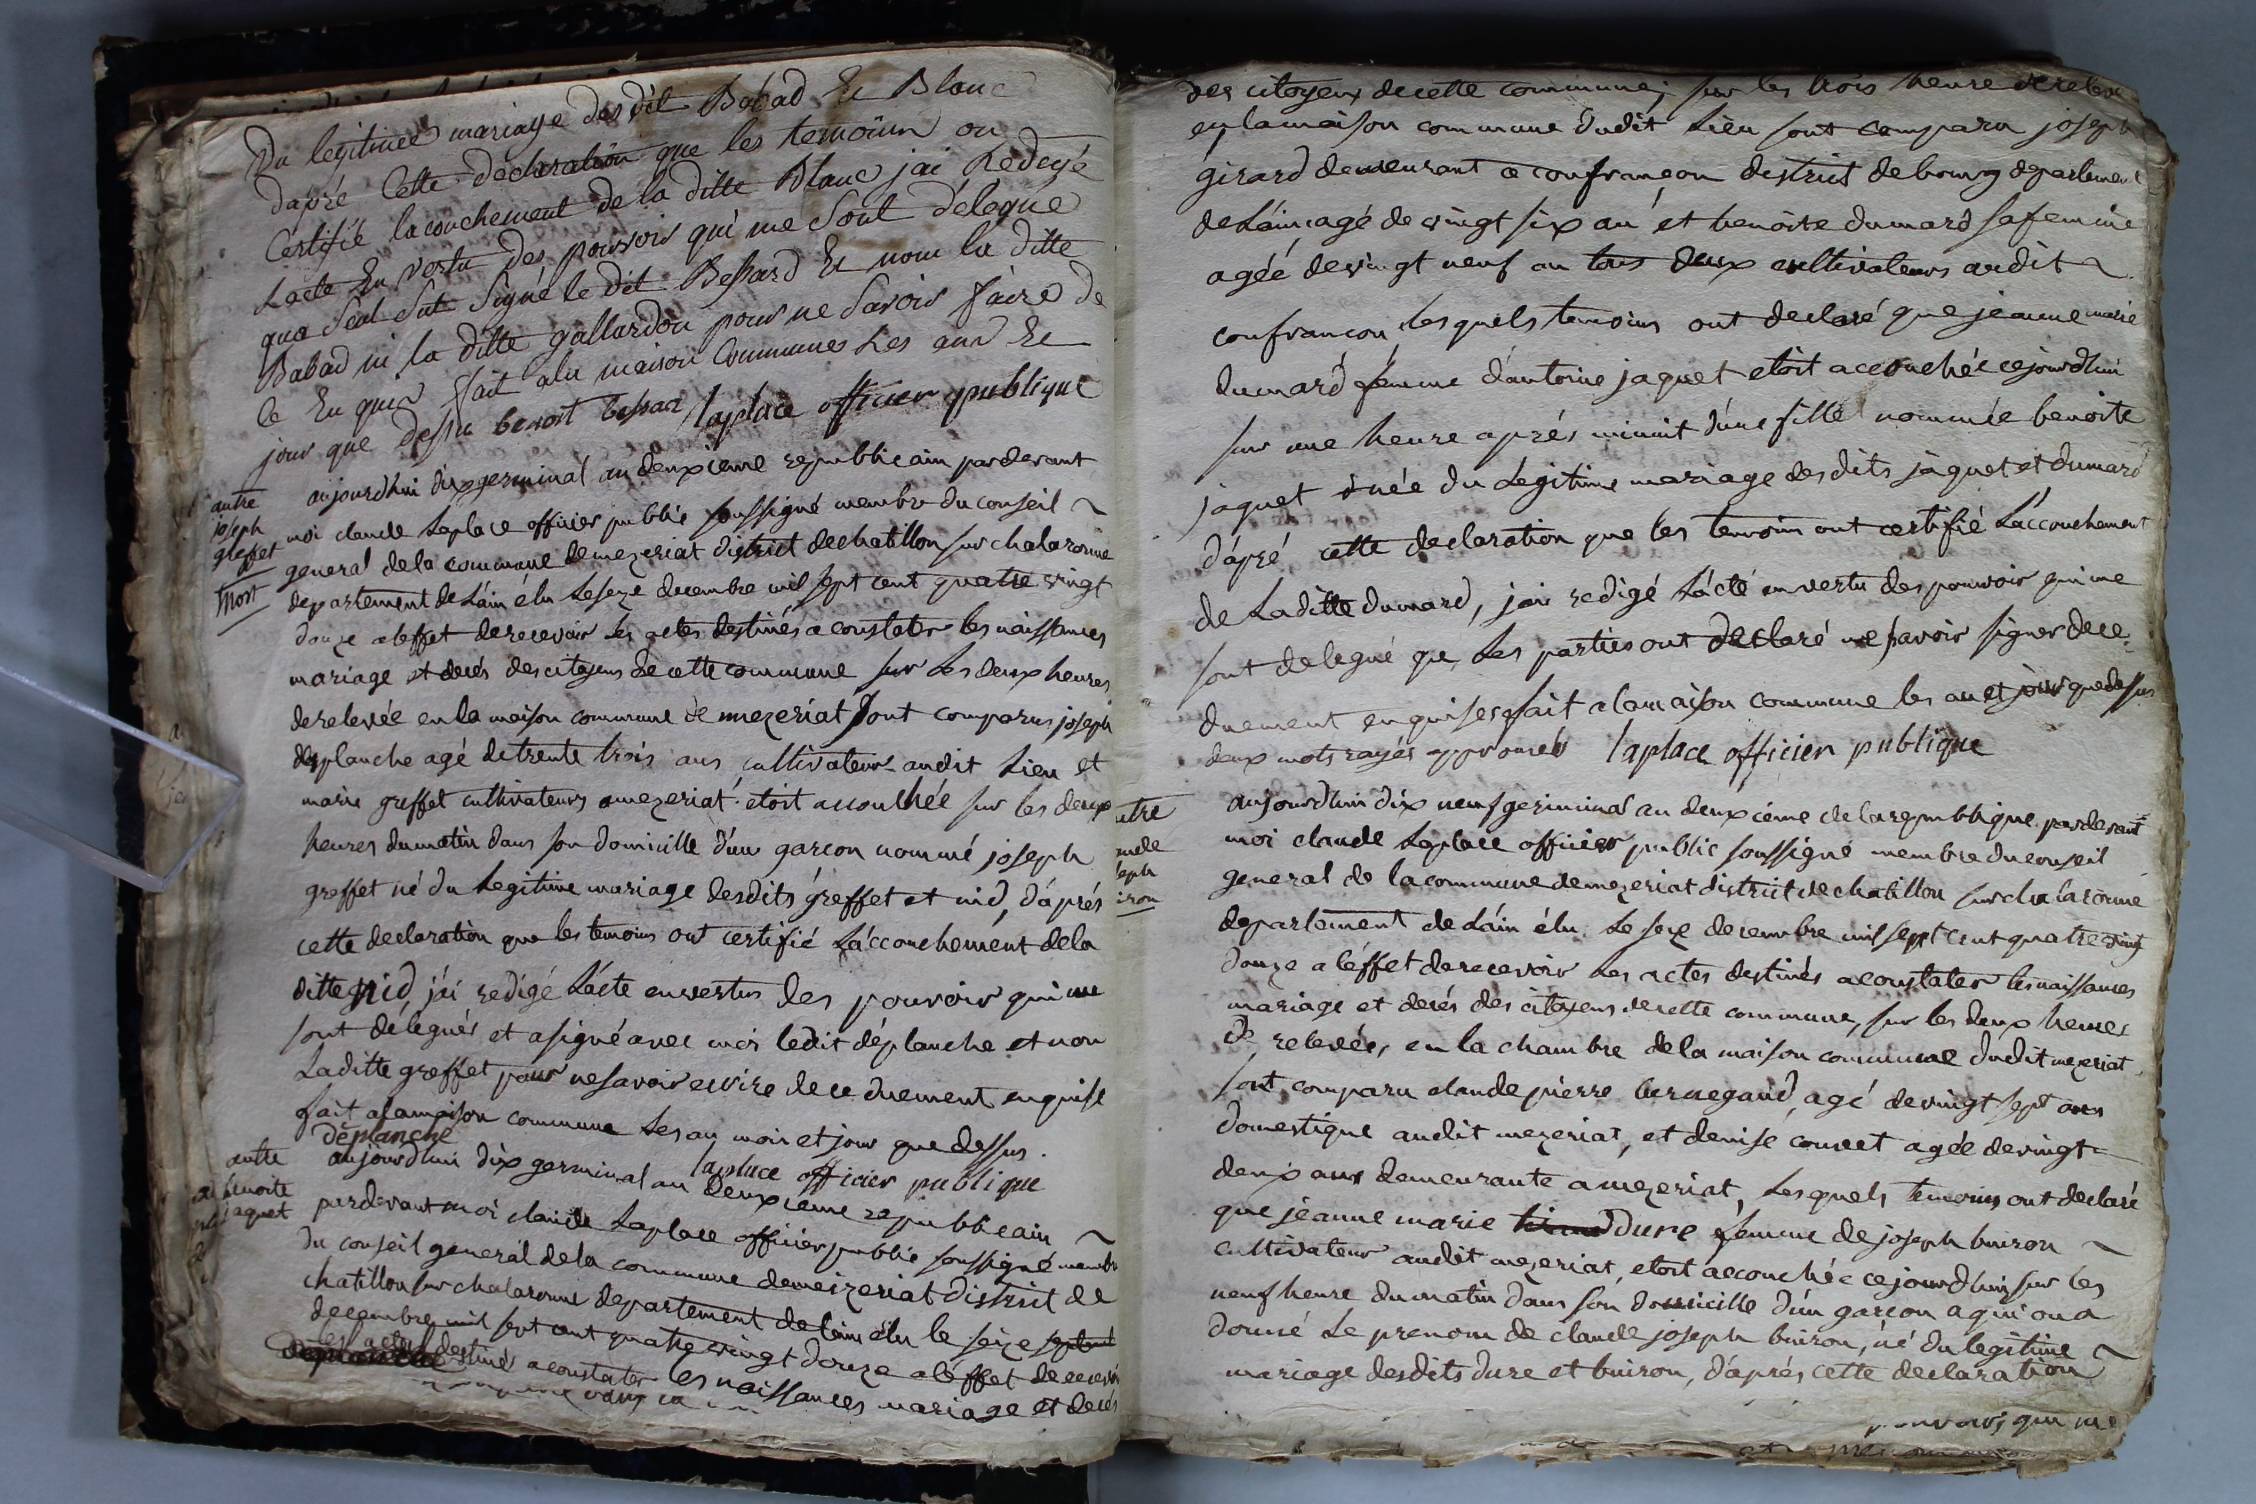 Du legitime mariage des dit Babad Et Blanc
dapré Cette declaration que les temoium on
Certifié lacouchement de la ditte Blanc jai Redegé
Lacte En vertu des pouvoir qui me Sont délegué
qua Seul Sut Signé le dit Bessard Et nom la ditte
Babad ni la ditte gallardon pour ne Savoir faire de
Ce Enquir fait ala maison Communes Les and Et
jour que dessu benoit bessar laplace officier publique
autre
joseph
greffet
Mort
aujourdhui dix germinal an deuxieme republicain pardevant
moi claude Laplace officier public soussigné membre du conseil
general de la commune de mezeriat district de chatillon sur chalaronne
departement de Láin élu Le seze decembre mil sept cent quatre vingt
douze a leffet de recevoir les actes destinés a constater les naissances
mariage et decés des citoyens de cette commune sur les deux heures
de relevée en la maison commune de mezeriat sont comparus joseph
déplanche agé de trente trois ans cultivateur audit Lieu et
marie greffet cultivateurs a mezeriat etoit accouchée sur les deux
heures du matin dans son domicille d'un garcon nommé joseph
greffet né du Legitime mariage desdits greffet et nid, d'áprés
cette declaration que les temoins ont certifié Láccouchement dela
ditte nid, j'ái redigé Lácte en vertus des pouvoir qui me
sont délegués et a signé avec moi ledit déplanche et non
Laditte greffet pour ne savoir ecrire de ce duement enquise
fait a la maison commune Les an mois et jour que dessus.
déplanche
laplace officier publique
autre
benoite
jaquet
aujourdhui dix germinal an deuxieme republicain
pardevant moi claude Laplace officier public soussigné membre
du conseil general de la commune de meizeriat district de
chatillon sur chalaronne departement de láin élu le seize septembr
decembre mil sept cent quatre vingt douze a léffet de recevoir
les actes destinés a constater les naissances mariage et decés
des citoyens de cette commune; sur les trois heure de relevé
en la maison commune dudit Lieu sont comparu joseph
girard demeurant a confrançon district de bourg departement
de Láin agé de vingt six an et benoite dumard sa femme
agéé de vingt neuf an tous deux cultivateurs audit
confrancon, lesquels temoins ont declaré que jeanne marie
dumard femme dántoine jaquet etoit accouchée cejourdhui
sur une heure aprés minuit dúne fille nommée benoite
jaquet née du Legitime mariage desdits jaquet et dumard
d'ápré cette declaration que les temoins ont certifié Láccouchement
de Laditte dumard, jai redigé Lácté en vertu des pouvoir qui me
sont delegué que Les parties ont declaré ne savoir signer de ce
duement enquises fait a la maison commune les an et jour que dessus
deux mots rayés approuvés laplace officier publique
utre
aude
seph
iron
aujourdhui dix neuf germinal an deuxiéme de la republique pardevant
moi claude Laplace officier public soussigné membre du conseil
general de la commune de mezeriat district de chatillon sur chalaronne
departement de Láin élu Le seze decembre mil sept cent quatre vingt
douze a léffet de recevoir Les actes destinés a constater les naissances
mariage et decés des citoyens de cette commune, sur les deux heures
de relevée, en la chambre de la maison commune dudit mezeriat
sont comparu claude pierre bernegaud, agé de vingt sept ans
domestique audit mezeriat, et denise convert agée de vingt
deux ans demeurante a mezeriat, Lesquels temoins ont declaré
que jéanne marie dure femme de joseph buiron
cultivateur audit mezeriat, etoit accouchée cejourdhui sur les
neuf heure du matin dans son domicille d'un garcon a qui on a
donné Le prenom de claude joseph buiron, né du legitime
mariage desdits dure et buiron, d'áprés cette declaration
pouvoirs qui me